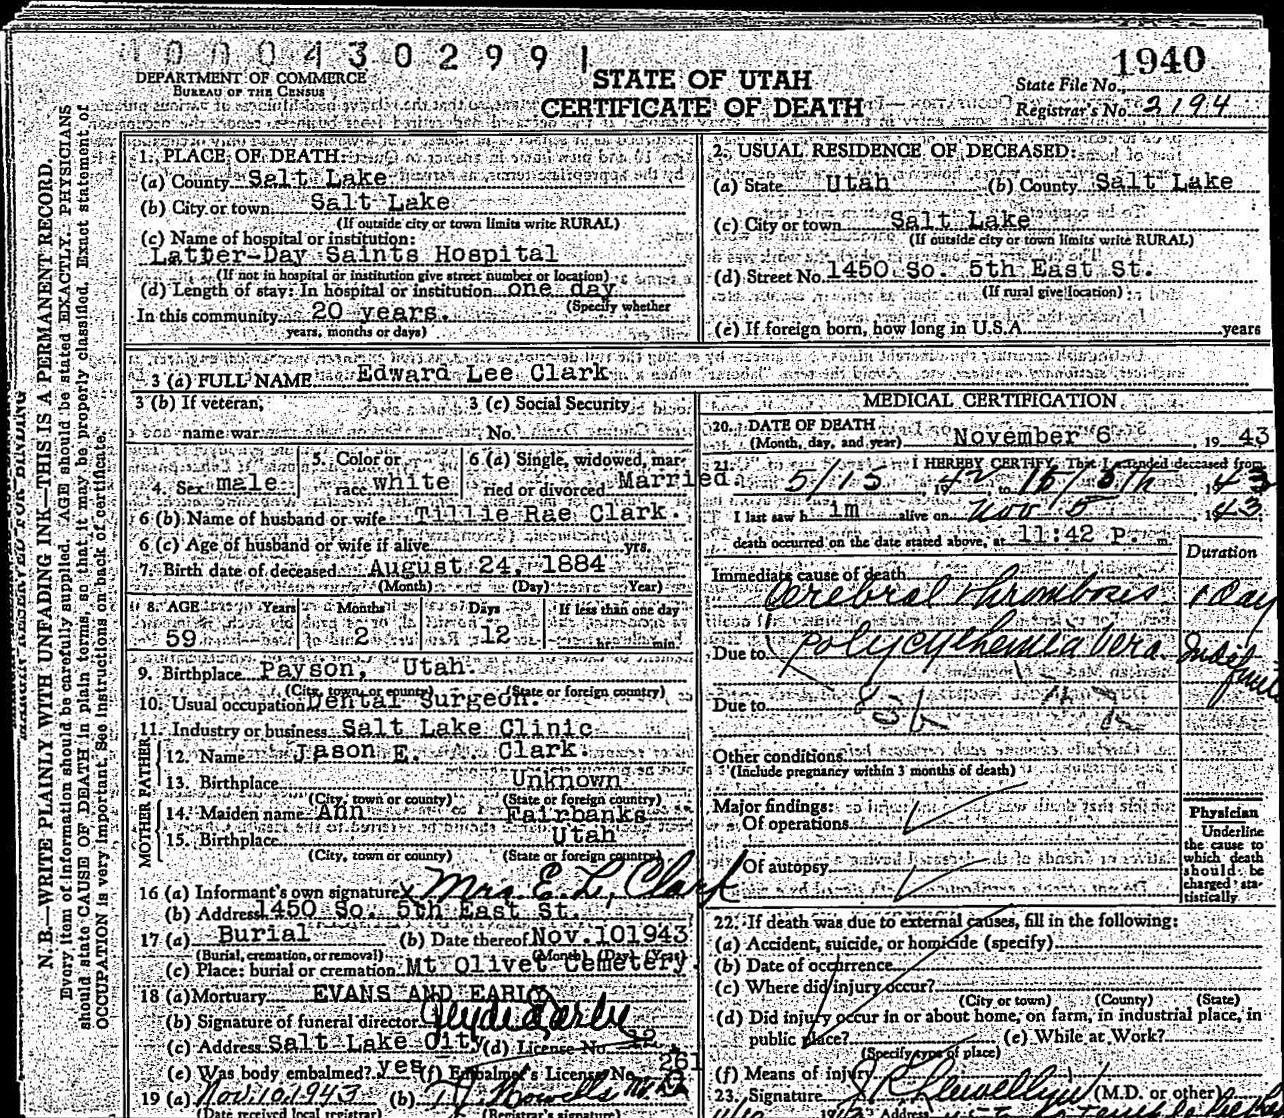 0004302991
1940
DEPARTMENT OF COMMERCE
BUREAU OF THE CENSUS
STATE OF UTAH
CERTIFICATE OF DEATH
State File No.
Registrar's No. 2194
N. B.—WRITE PLAINLY WITH UNFADING INK—THIS IS A PERMANENT RECORD.
Every item of information should be carefully supplied. AGE should be stated EXACTLY. PHYSICIANS
should state CAUSE OF DEATH in plain terms, so that it may be properly classified. Exact statement of
OCCUPATION is very important. See instructions on back of certificate.
1. PLACE OF DEATH:
(a) County Salt Lake
(b) City or town Salt Lake
(If outside city or town limits write RURAL)
(c) Name of hospital or institution:
Latter-Day Saints Hospital
(If not in hospital or institution give street number or location)
(d) Length of stay: In hospital or institution one day
(Specify whether
In this community 20 years.
years, months or days)
2. USUAL RESIDENCE OF DECEASED:
(a) State Utah (b) County Salt Lake
(c) City or town Salt Lake
(If outside city or town limits write RURAL)
(d) Street No. 1450 So. 5th East St.
(If rural give location)
(e) If foreign born, how long in U.S.A. years
3 (a) FULL NAME Edward Lee Clark
3 (b) If veteran, 3 (c) Social Security
name war No.
4. Sex male 5. Color or race white 6 (a) Single, widowed, married or divorced Married.
6 (b) Name of husband or wife Tillie Rae Clark.
6 (c) Age of husband or wife if alive yrs.
7. Birth date of deceased August 24, 1884
(Month) (Day) Year)
8. AGE Years Months Days If less than one day
59 2 12 hr. min.
9. Birthplace Payson, Utah.
(City, town or county) (State or foreign country)
10. Usual occupation Dental Surgeon.
11. Industry or business Salt Lake Clinic
FATHER
12. Name Jason E. Clark.
13. Birthplace Unknown
(City, town or county) (State or foreign country)
MOTHER
14. Maiden name Ann Fairbanks
15. Birthplace Utah
(City, town or county) (State or foreign country)
16 (a) Informant's own signature x Mrs E. L. Clark
(b) Address 1450 So. 5th East St.
17 (a) Burial (b) Date thereof Nov. 10 1943
(Burial, cremation, or removal) (Month) (Day) (Year)
(c) Place: burial or cremation Mt Olivet Cemetery.
18 (a) Mortuary EVANS AND EARLY
(b) Signature of funeral director
(c) Address Salt Lake City (d) License No.
(e) Was body embalmed? yes (f) Embalmer's License No. 261
19 (a) Nov. 10. 1943 (b)
(Date received local registrar) (Registrar's signature)
MEDICAL CERTIFICATION
20. DATE OF DEATH
(Month, day, and year) November 6, 1943
21. I HEREBY CERTIFY, That I attended deceased from
5/15, 1942 to 1943
I last saw h im alive on Nov 5, 1943
death occurred on the date stated above, at 11:42 P. m.
Duration
Immediate cause of death
Cerebral thrombosis 1 day
Due to Polycythemia Vera. Indefinite
Due to
Other conditions
(Include pregnancy within 3 months of death)
Major findings:
Of operations
Of autopsy
Physician
Underline
the cause to
which death
should be
charged sta-
tistically
22. If death was due to external causes, fill in the following:
(a) Accident, suicide, or homicide (specify)
(b) Date of occurrence
(c) Where did injury occur?
(City or town) (County) (State)
(d) Did injury occur in or about home, on farm, in industrial place, in
public place? (e) While at Work?
(Specify type of place)
(f) Means of injury
23. Signature J R Llewellyn (M.D. or other)
Address